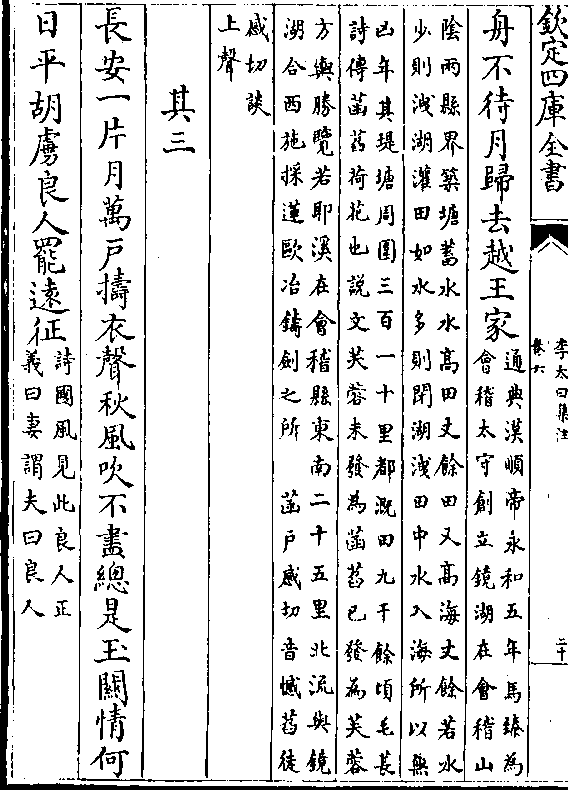 欽定四庫全書
李太白集注
卷六
二十
舟不待月歸去越王家
通典漢順帝永和五年馬臻為
會稽太守創立鏡湖在會稽山
陰兩縣界築塘蓄水水髙田丈餘田又髙海丈餘若水
少則洩湖灌田如水多則閉湖洩田中水入海所以無
凶年其堤塘周圍三百一十里都溉田九千餘頃毛萇
詩傳菡萏荷花也說文芙蓉未發為菡萏已發為芙蓉
方輿勝覽若耶溪在㑹稽縣東南二十五里北流與鏡
湖合西施採蓮歐冶鑄劍之所　菡戶感切音憾萏徒
感切談
上聲
其三
長安一片月萬戶擣衣聲秋風吹不盡總是玉關情何
日平胡虜良人罷逺征
詩國風見此良人正
義曰妻謂夫曰良人